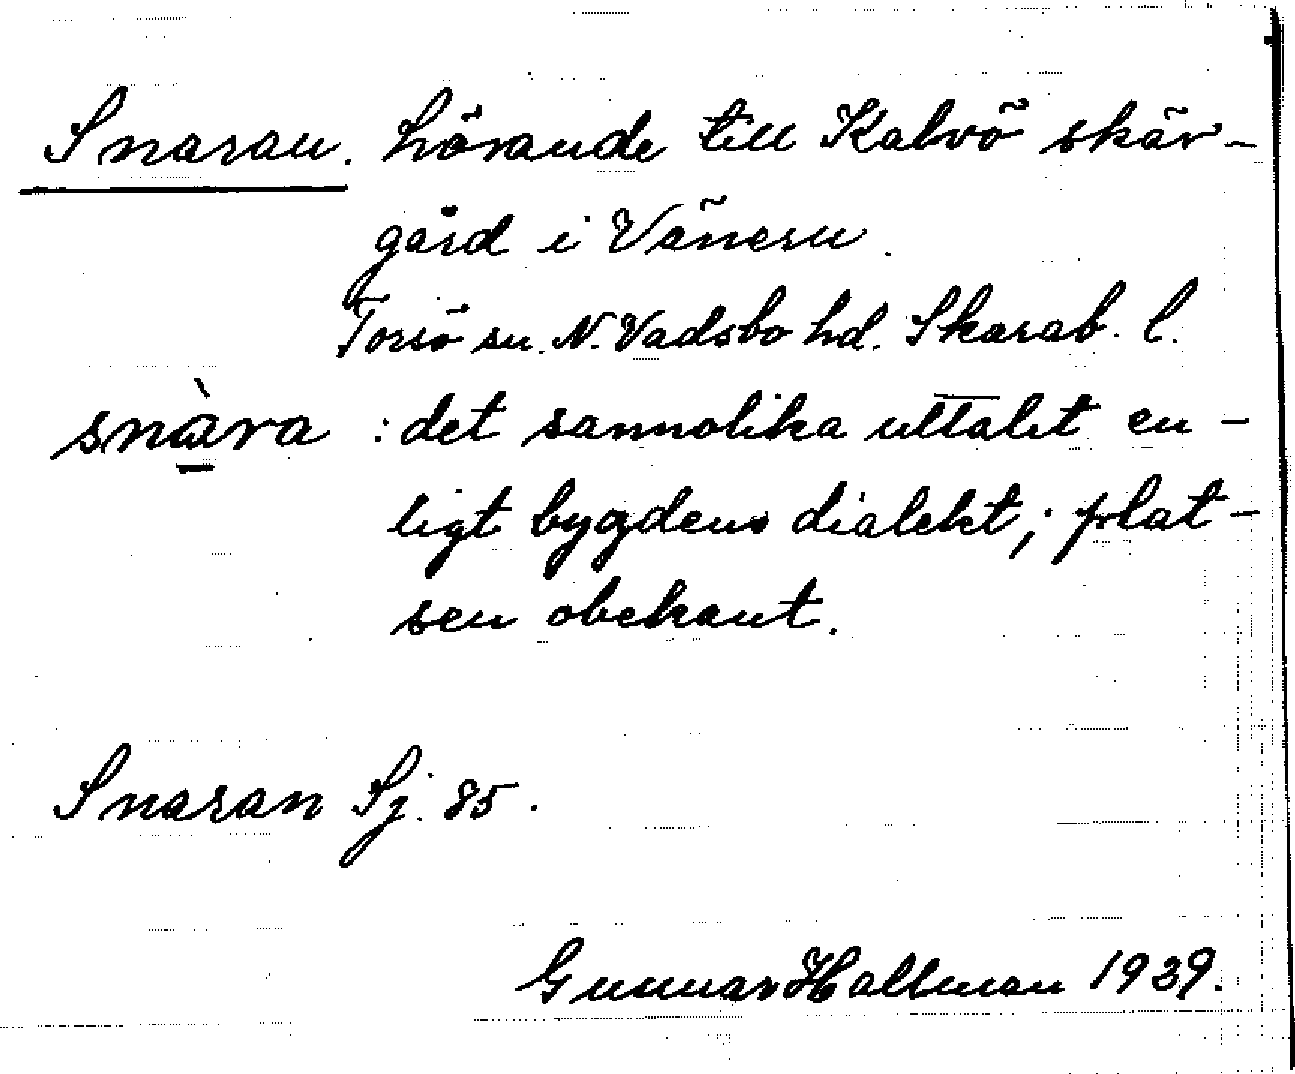 Snaran. hörande till Kalvö skär-
gård i Vänern.
Torsö sn. N. Vadsbo hd. Skarab. l.
snàra : det sannolika uttalet en-
ligt bygdens dialekt; plat-
sen obekant.
Snaran Sj. 85.
Gunnar Hallman 1939.